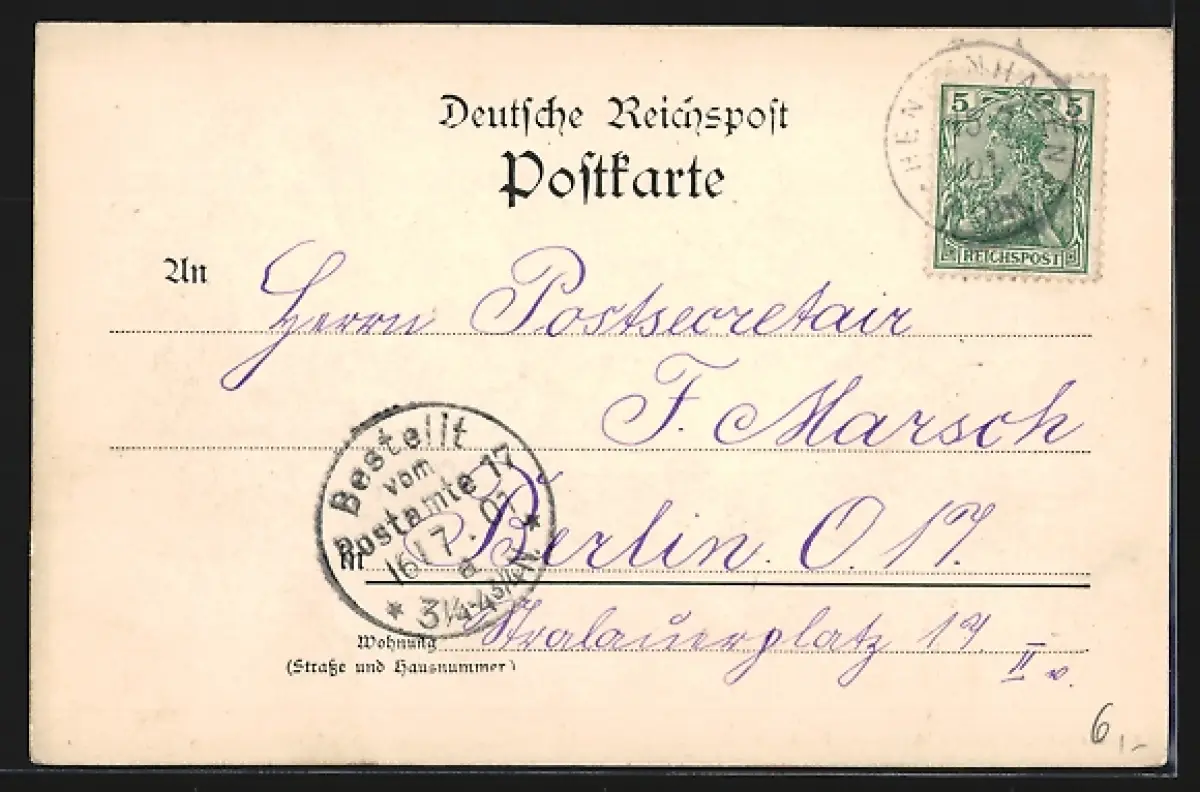 Deutsche Reichspost
Postkarte
5 5
REICHSPOST
An
Herrn Postsecretair
F. Marsch
Bestellt
vom
Postamte 17
16 7 02
a
* 3¼-4¾N. *
in
Berlin. O. 17.
Wohnung
(Straße und Hausnummer)
Stralauerplatz 17.
II v.
6,-